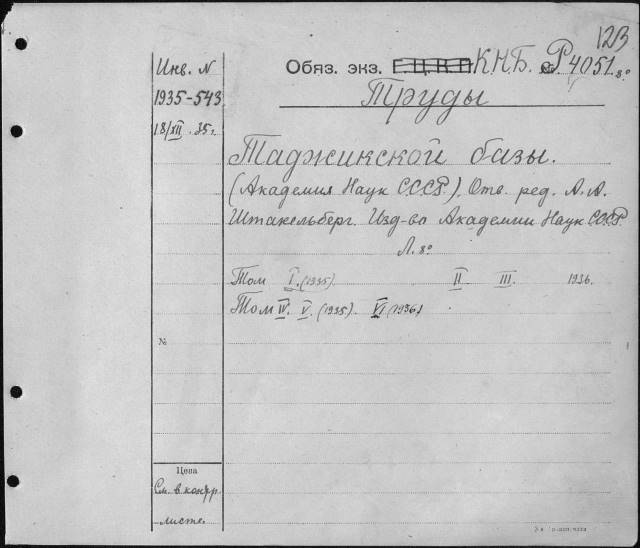 123
Инв. N
1935-543
18/XII.35г.
Обяз. экз. Г.Ц.К.П К.Н.Б. № Р 4051.8°
Труды
Таджикской базы.
(Академия Наук СССР). Отв. ред. А.А.
Штакельберг. Изд-во Академии Наук СССР.
Л. 8°
Том I. (1935). II III. 1936.
Том IV. V. (1935). VI (1936)
№
Цена
См. в контр.
листе.